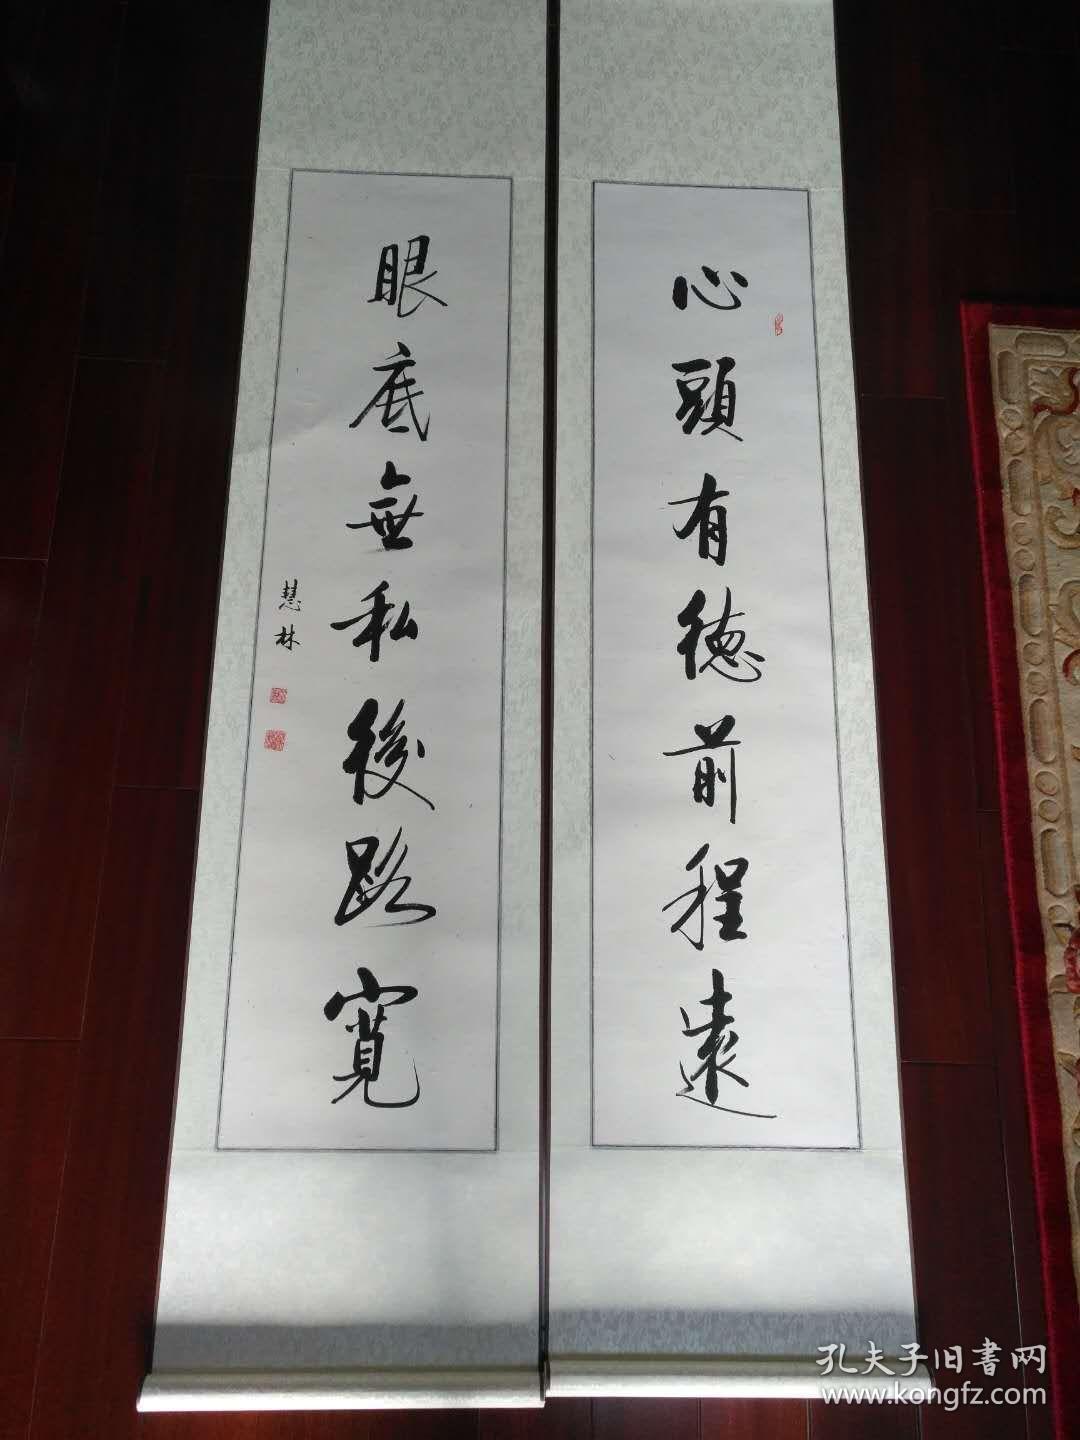 心頭有德前程遠
眼底無私後路寬
慧林
孔夫子旧書网
www.kongfz.com